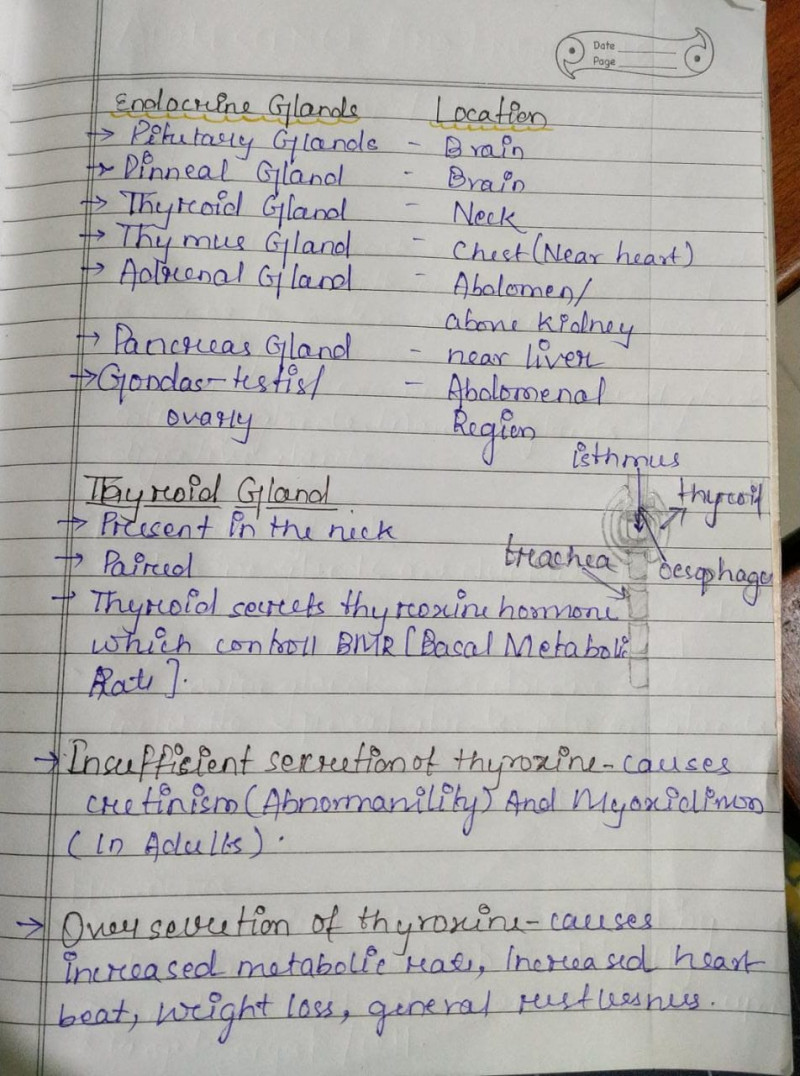 Date
Page
Endocrine Glands Location
→ Pitutary Glands - Brain
→ Pinneal Gland - Brain
→ Thyroid Gland - Neck
→ Thymus Gland - Chest (Near heart)
→ Adrenal Gland - Abdomen/
abone kidney
→ Pancreas Gland - near liver
→ Gondas - testis/ - Abdomenal
ovary Region
isthmus
Thyroid Gland
thyroid
→ Present in the neck
trachea
oesophagu
→ Paired
→ Thyroid secrets thyroxine hormone
which controll BMR [Basal Metabolic
Rate].
→ Insufficient secretion of thyroxine - causes
cretinism (Abnormanility) And
(In Adults).
→ Over secretion of thyroxine - causes
increased metabolic rate, increased heart
beat, weight loss, general